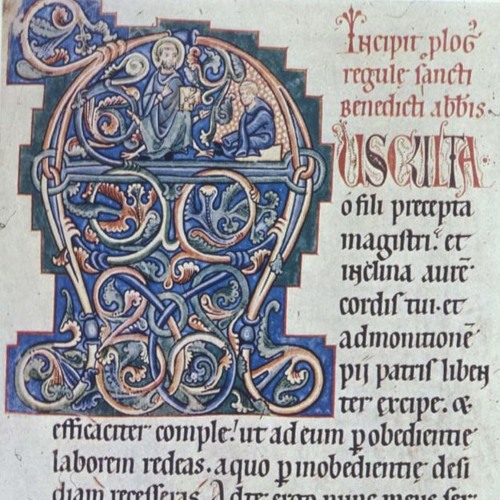 Incipit plog̅
regule sancti
benedicti abbis.
AUSCULTA
o fili precepta
magistri: et
inclina aure̅
cordis tui. et
admonitione̅
pii patris liben
ter excipe. &
efficaciter comple: ut ad eum p̱ obedientie
laborem redeas. a quo p̱ inobedientie desi
diam recesseras. Ad te ergo nunc meus ser